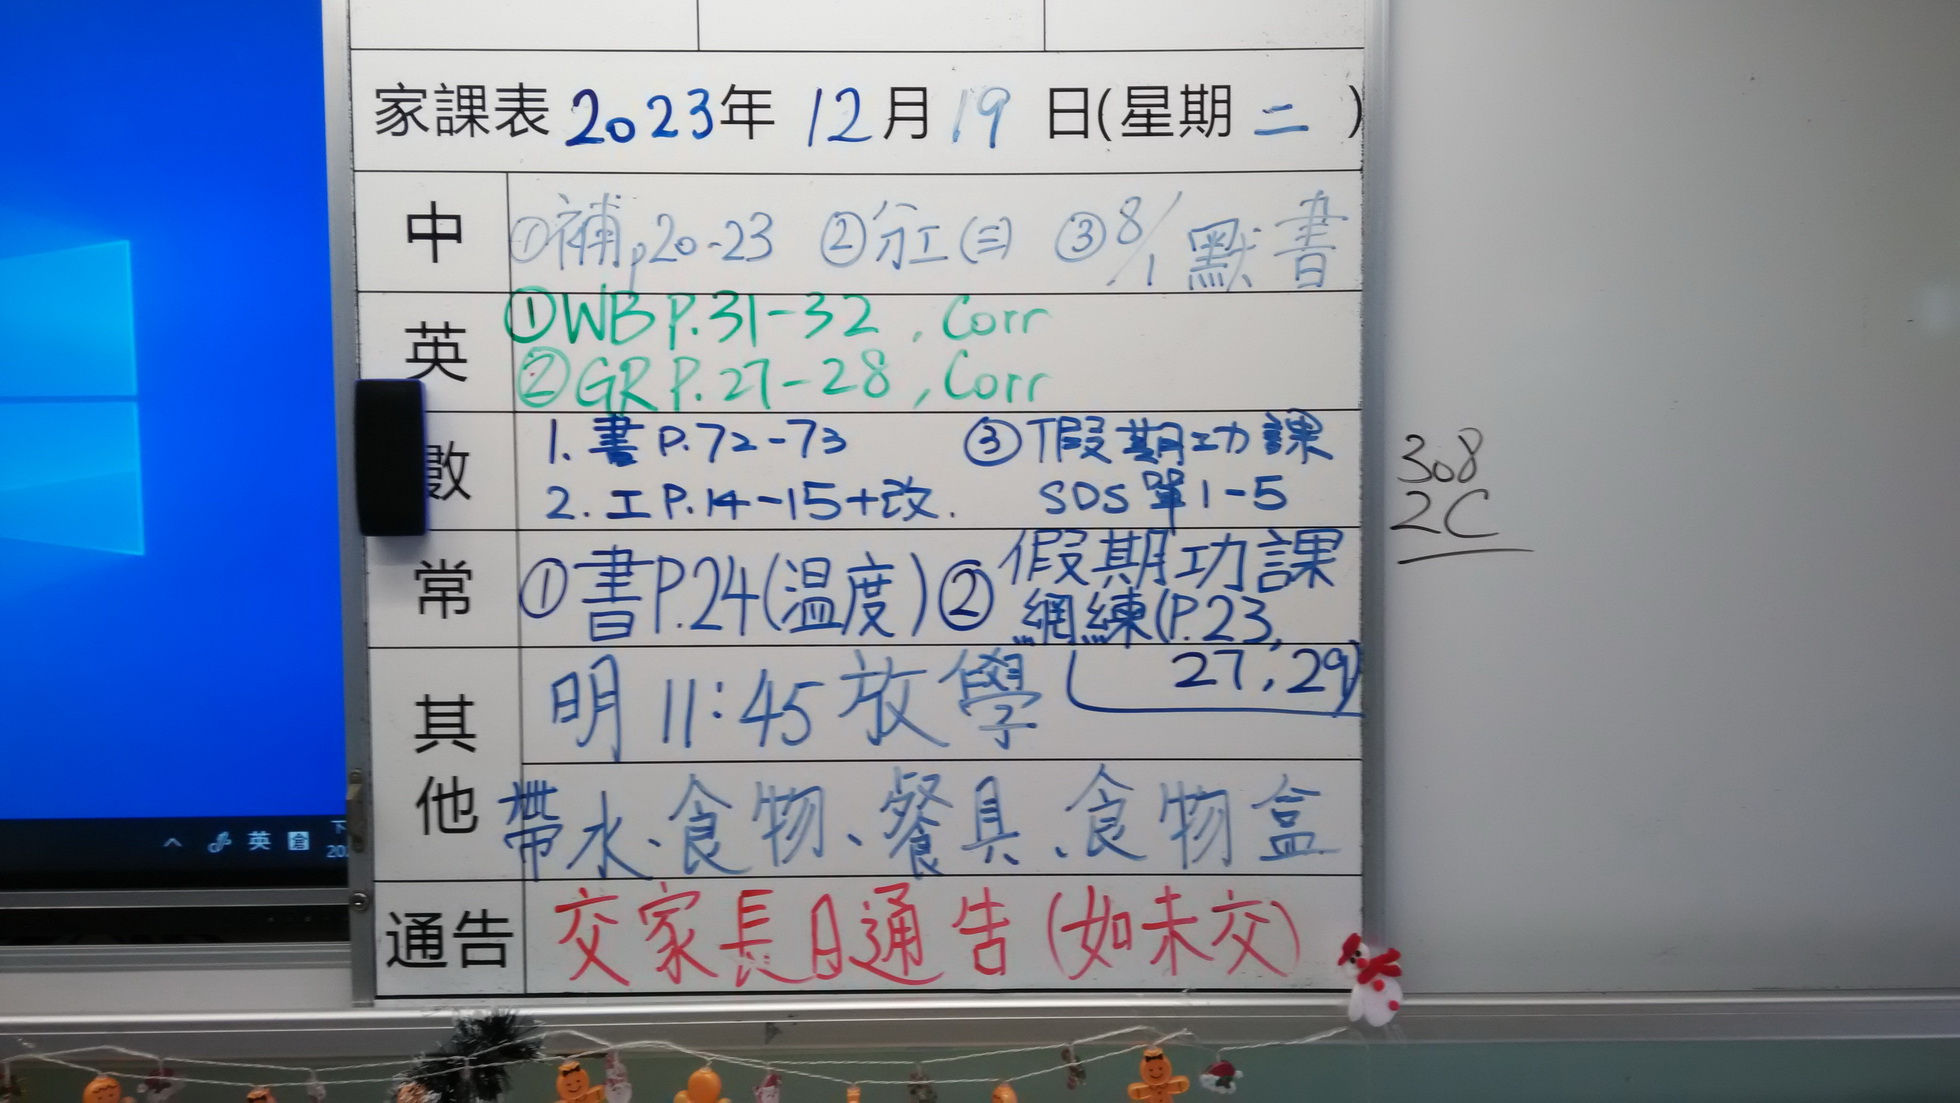 家課表 2023年 12月 19 日(星期 二 )
中 ①補p20-23 ②分工(三) ③8/1 默書
英 ①WB P.31-32 , Corr
②GR P.27-28 , Corr
數 1. 書 P.72-73 ③假期功課
2. 工 P.14-15+改. SDS 單 1-5
常 ①書P.24(温度) ②假期功課
網練(P.23,
27, 29)
其他 明 11:45 放學
帶水、食物、餐具、食物盒
通告 交家長日通告(如未交)
308
2C
英 倉 下
20